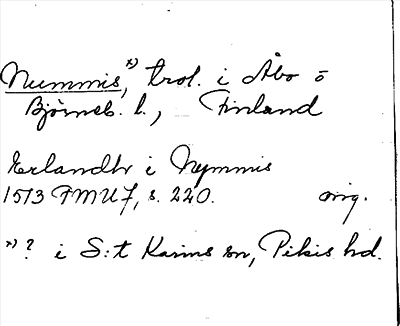 Nummis,*) trol. i Åbo o
Björneb. l., Finland
Erlandh i Nymmis
1513 FMU 7, s. 220. orig.
*) ? i S:t Karins sn, Pikis hd.